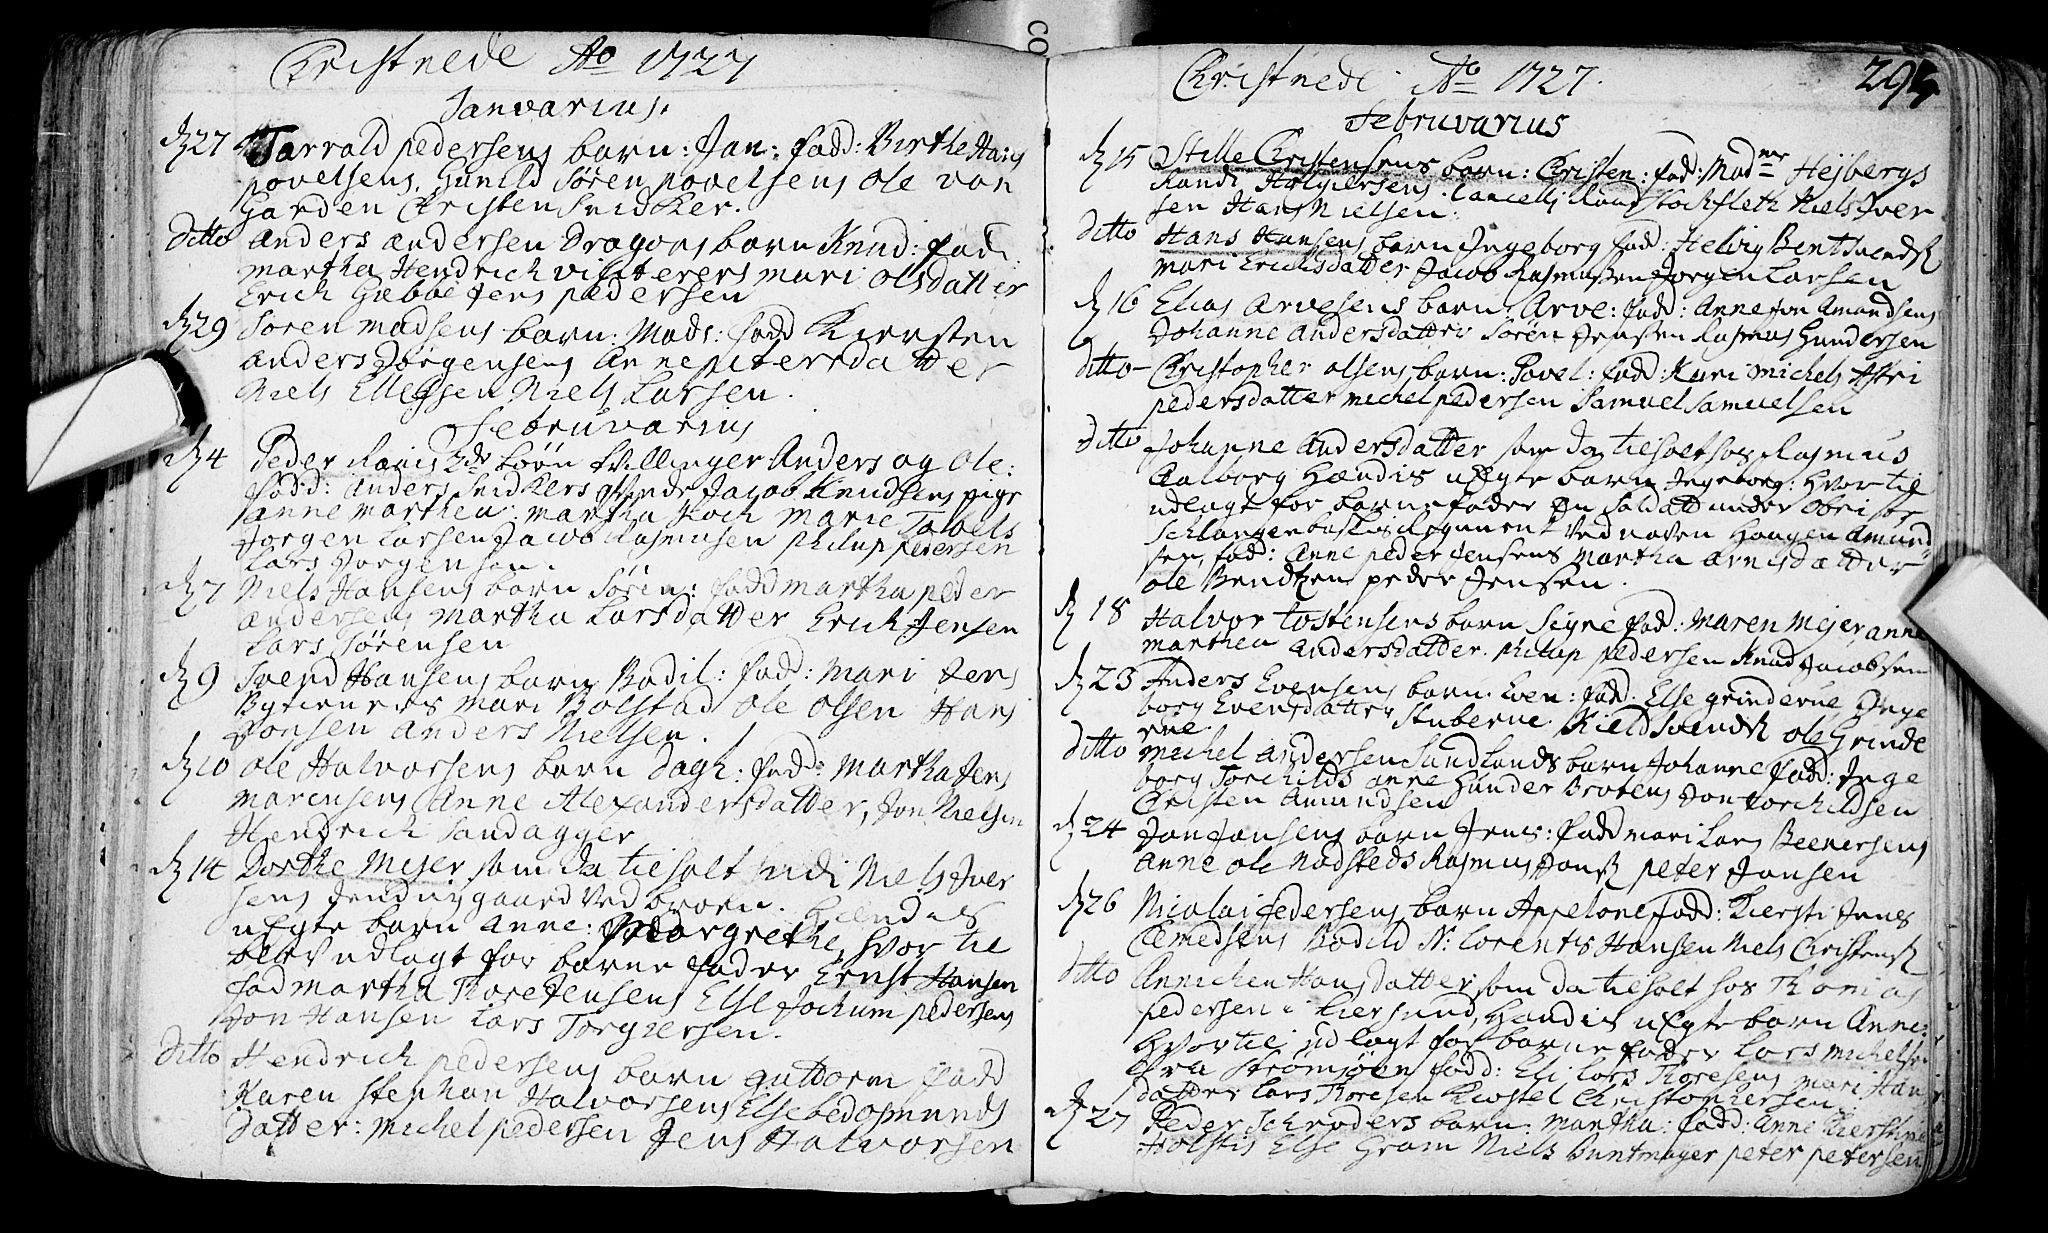 Christnede Ao 1727
Januarius.
d 27 Tarrald pedersens barn: Jan: fadd: Birthe Hans
povelsens, Gunild Sören povelsens Ole von
Garden Christen Snidker.
Ditto Anders andersen Dragons barn Knud: fadd
martha Hendrich mari olsdatter
Erich Gæbbe Jens pedersen
d 29 Sören madsens barn: Mads: fadd Kiersten
anders Jörgensens Anne pitersdatter
Niels Ellefsen Niels Larsen.
Februvarius
d 4 Peder Ravis 2de börn tvillinger Anders og Ole:
fadd: anders Snidkers Jacob Knudsens pige
anne marthea martha Koch marie Tobels
Jorgen Larsen Jacob Rasmusen philup pedersen
Lars Jorgensen.
d 7 Niels Hansens barn Sören: fadd martha peder
andersens martha Larsdatter Erich Jensen
Lars Sörensen
d 9 Svend Hansens barn Bodil: fadd: mari Jens
mari Bolstad Ole olsen Hans
Jonsen anders Nielsen.
d 10 ole Halvorsens barn Dagh: fadd: martha Jens
marensens Anne Alexandersdatter, Jon Nielsen
Hendrich Sandagger
d 14 Dorthe Meyer som da tilholt udi Niels Iver
sens ved broen. hendes
uÆgte barn anne: Margrethe, hvor til
blev udlagt for barne fader Ernst Hansen
fad martha Thore Jensens Else Jochum pedersens
Jon Hansen Lars Torgiersen.
Ditto Hendrich pedersens barn guttorm fadd
Karen Stephan Halvorsens Else bedosmunds
datter: michel pedersen Jens Halvorsen
Christnede Ao 1727.
295
Februvarius
d 15 Stille Christensens barn: Christen: fad: Madme Hejbergs
Randi Holgiersens: Cancellj Raad Stochfleth Niels Iver
sen Hans Nielsen:
ditto Hans Hansens barn Ingeborg fad: Helvig Bent Svends
mari Erichsdatter Jacob Rasmussen Jorgen Larsen
d 16 Elias Arvesens barn: Arve: fadd: Anne Jon Amundsens
Johanne Andersdatter Sören Jensen Rasmus Gundersen
ditto- Christopher olsens barn: Povel: fadd: Kari Michels Astri
pedersdatter michel pedersen Samuel Samuelsen
ditto Johanne Andersdatter som da tilholt hos Rasmus
Aalborg Hendis uÆgte barn Ingeborg: hvor til
udlagt for barnefader En Soldat under Obrister
Regiment ved navn Haagen Amund
sen, fadd: Anne peder Jensens Martha arnisdatter
ole Bendtzen peder Jensen.
d 18 Halvor Tostensens barn Signe fad: maren Mejer anne
marthea Andersdatter. philup pedersen Knud Jacobsen
d 23 Anders Evensens barn. Even: fad: Else grinderne Inge
borg Evensdatter Stuberne. Kield Svends ole Grinde
rne
ditto michel andersen Sandlands barn Johanne fadd: Inge
borg Torchilds anne Gunder Brotens Jon Torchildsen
Christen Amundsen
d 24 Jan Jansens barn Jens: fadd mari Lars Beenersens
Anne ole Nodsteds Rasmus Jans peter Jansen
d 26 Nicolai federsens barn Appelone fadd: Kiersti Jens
Clemedsens Bodild N: Lorents Hansen Niels Christens
ditto Annichen Hansdatter som da tilholt hos Thomas
pedersen i Kiersund, Handis uÆgte barn Anne:
Hvortil udlagt for barnefader Lars michelsen
fra Strömsöen fadd: Eli Lars Thoresens mari Han
datter Lars Thoresen Kiostel Christophersen
d 27 Peder Schroders barn: martha: fadd: Anne Kierstine
Holstis Else Gram Niels Buntmager peter petersen